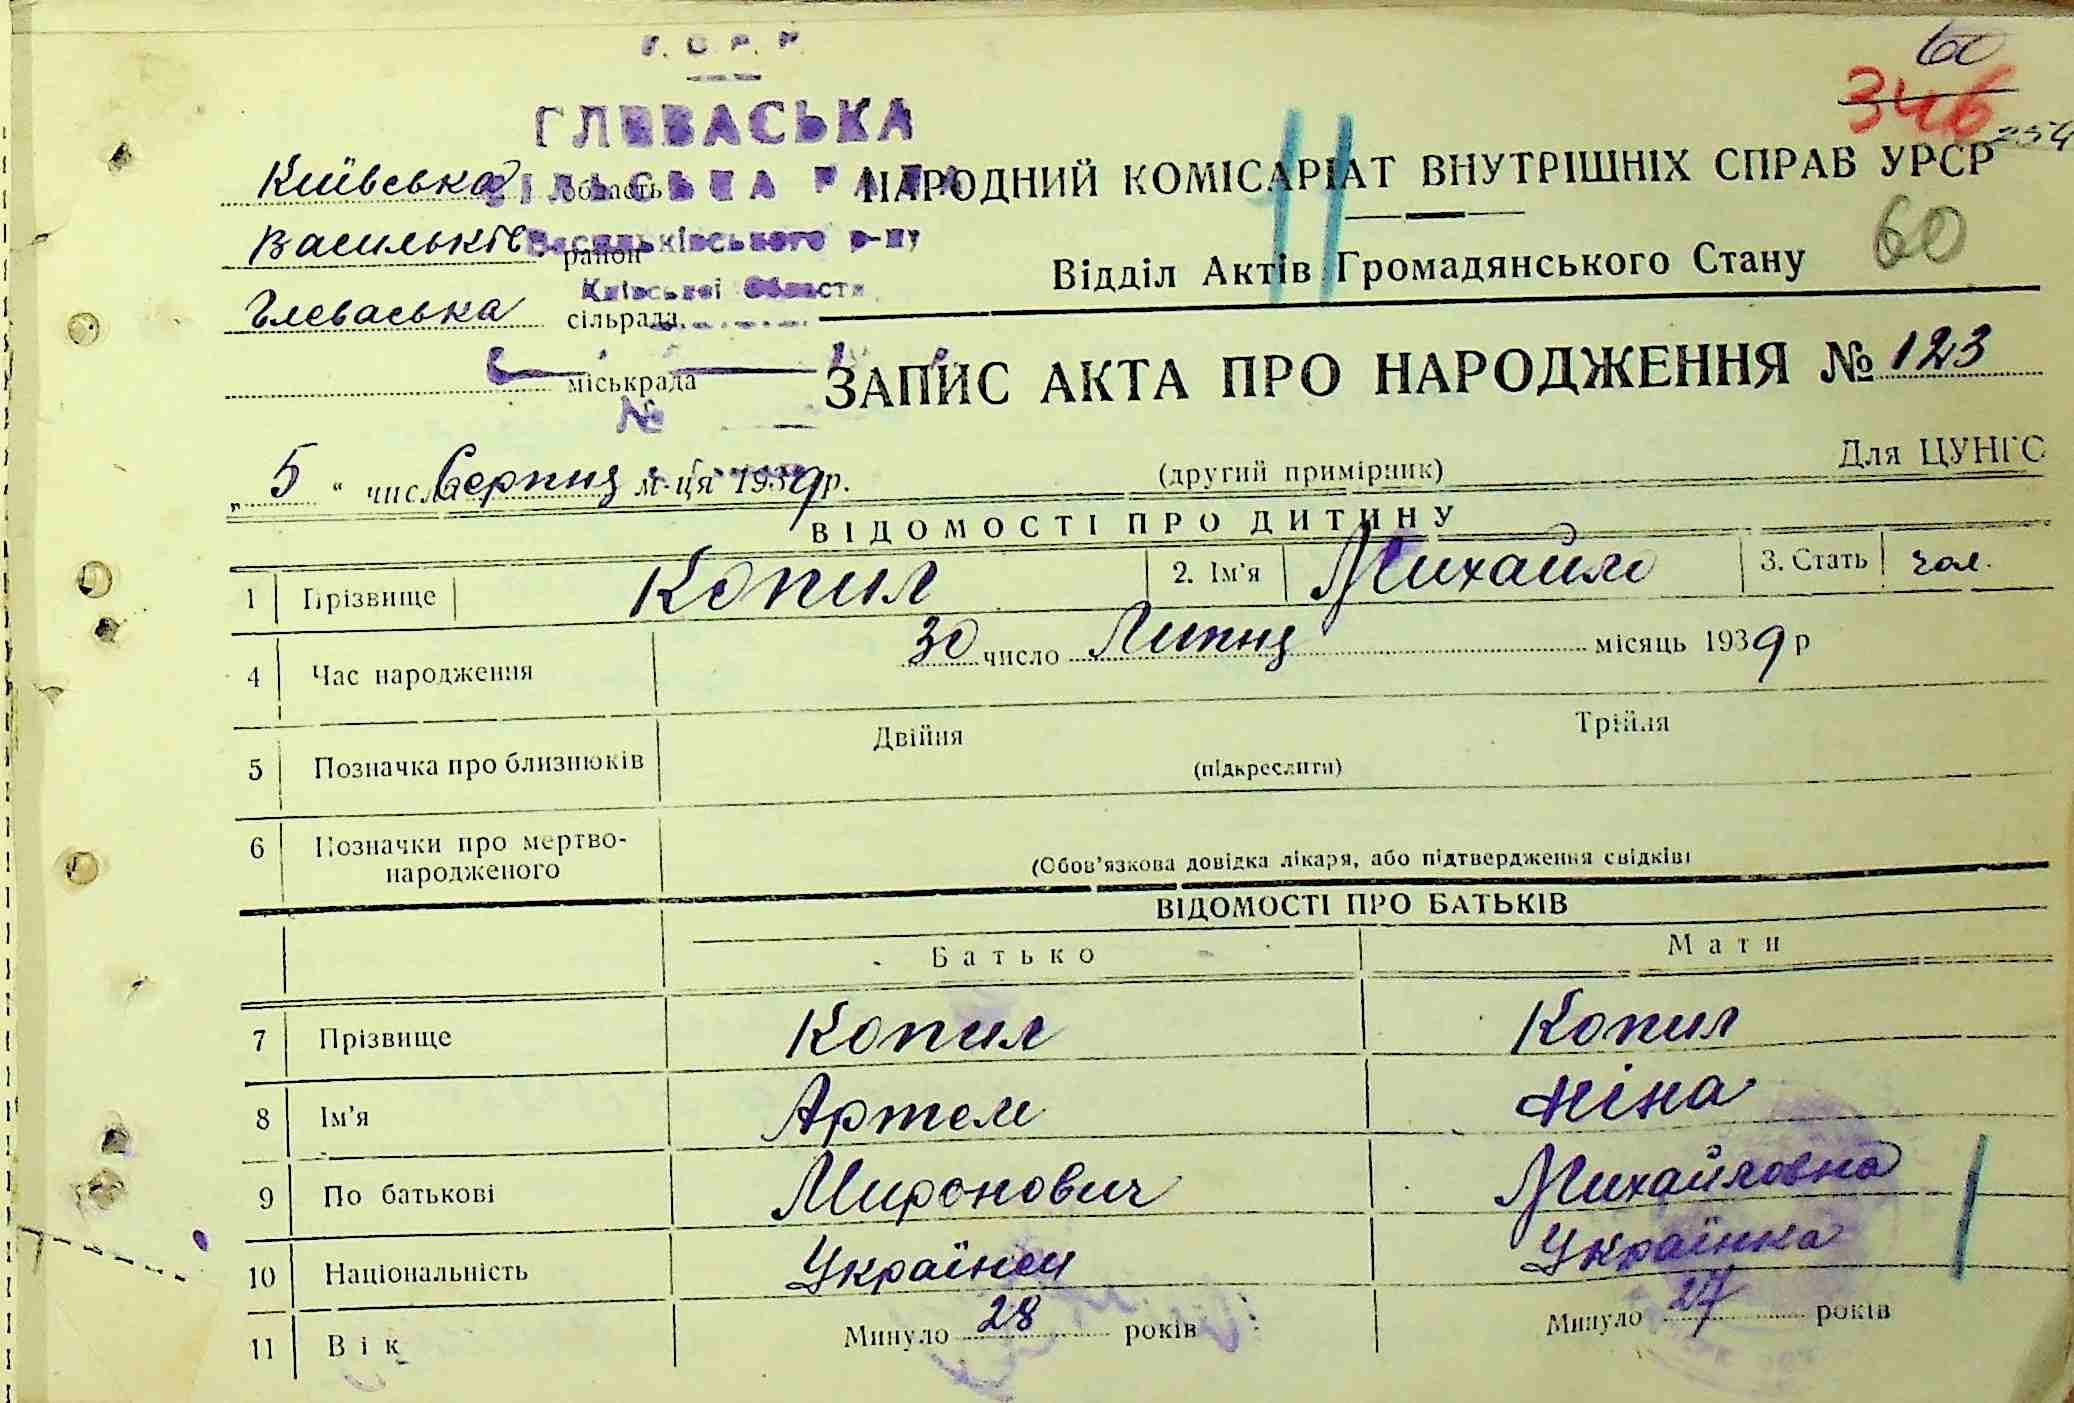 У. С. Р. Р.
ГЛЕВАСЬКА
СІЛЬСЬКА РАДА
Васильківського р-ну
Київської Області
№
60
346
254
60
Київська область
Васильків. район
Глеваська сільрада
міськрада
НАРОДНИЙ КОМІСАРІАТ ВНУТРІШНІХ СПРАВ УРСР
Відділ Актів Громадянського Стану
ЗАПИС АКТА ПРО НАРОДЖЕННЯ № 123
„5“ числа Серпня м-ця 1939 р.
(другий примірник)
Для ЦУНГО
ВІДОМОСТІ ПРО ДИТИНУ
1 Прізвище Копил 2. Ім'я Михайло 3. Стать чол.
4 Час народження 30 число Липня місяць 1939 р
5 Позначка про близнюків Двійня (підкреслити) Трійля
6 Позначки про мертво-
народженого (Обов'язкова довідка лікаря, або підтвердження свідків)
ВІДОМОСТІ ПРО БАТЬКІВ
Батько Мати
7 Прізвище Копил Копил
8 Ім'я Артем Ніна
9 По батькові Миронович Михайловна
10 Національність Українец Українка
11 Вік Минуло 28 років Минуло 27 років